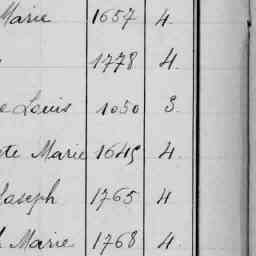 Marie 1657 4.
1778 4.
e Louis 1050 3.
te Marie 1645 4.
Joseph 1765 4
Marie 1768 4.